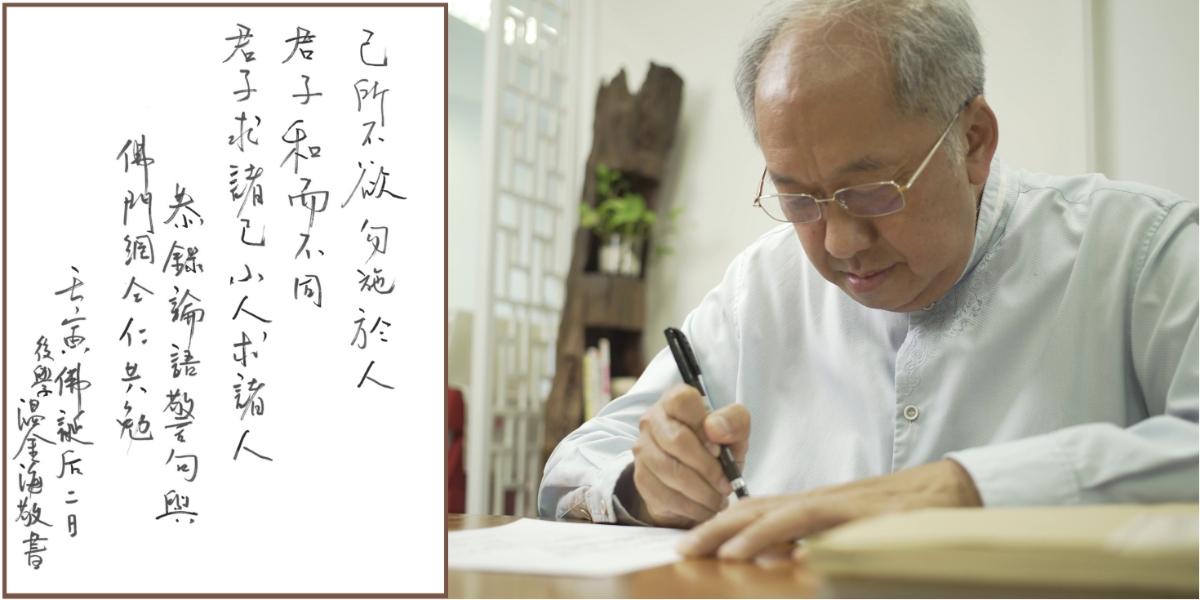 己所不欲勿施於人
君子和而不同
君子求諸己小人求諸人
恭錄論語警句與
佛門網仝仁共勉
壬寅佛誕后二日
後學溫金海敬書